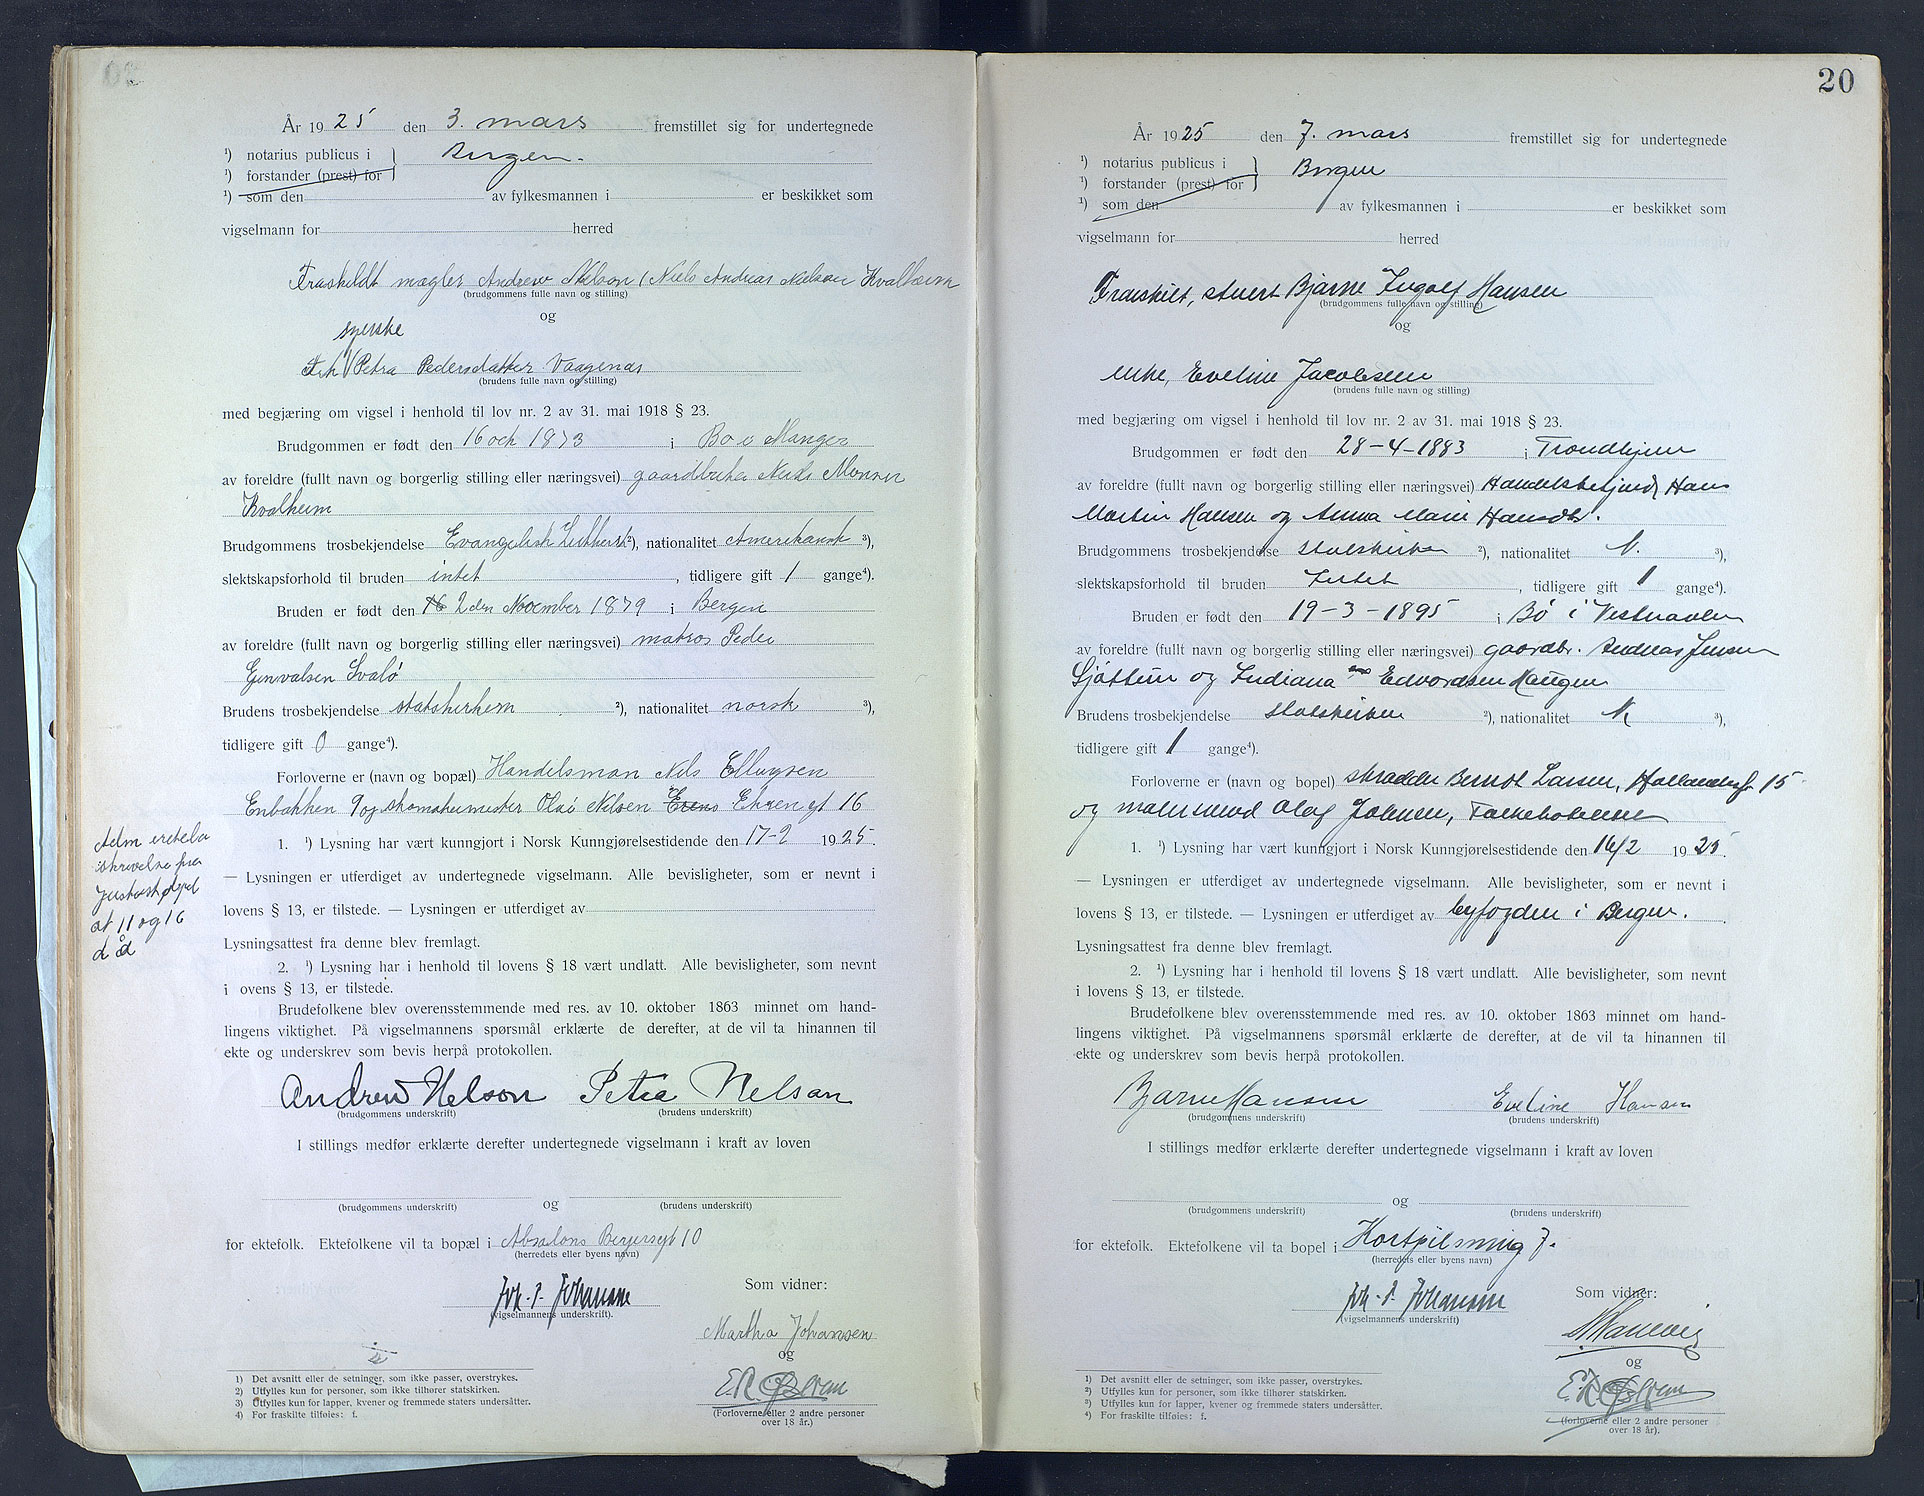 År 1925 den 3. mars fremstillet sig for undertegnede
¹) notarius publicus i Bergen.
¹) forstander (prest) for
¹) som den av fylkesmannen i er beskikket som
vigselmann for herred
Fraskildt mægler Andrew Nelson (Niels Andreas Nielsen Kvalheim
(brudgommens fulle navn og stilling)
og
syerske
Frk Petra Pedersdatter Vaagenæs
(brudens fulle navn og stilling)
med begjæring om vigsel i henhold til lov nr. 2 av 31. mai 1918 § 23.
Brudgommen er født den 16 och 1873 i Bo i Manger
av foreldre (fullt navn og borgerlig stilling eller næringsvei) gaardbruker Niels Monsen
Kvalheim
Brudgommens trosbekjendelse Evangelisk Luthersk ²), nationalitet Amerikansk ³),
slektskapsforhold til bruden intet , tidligere gift 1 gange⁴).
Bruden er født den 16 2den November 1879 i Bergen
av foreldre (fullt navn og borgerlig stilling eller næringsvei) matros Peder
Svalø
Brudens trosbekjendelse statskirken ²), nationalitet norsk ³),
tidligere gift 0 gange⁴).
Forloverne er (navn og bopæl) Handelsman Nils Ellingsen
Enbakken 9 og skomakermester Olai Nilsen Evens Ehrengt 16
1. ¹) Lysning har vært kunngjort i Norsk Kunngjørelsestidende den 17-2 1925.
— Lysningen er utferdiget av undertegnede vigselmann. Alle bevisligheter, som er nevnt i
lovens § 13, er tilstede. — Lysningen er utferdiget av
Lysningsattest fra denne blev fremlagt.
2. ¹) Lysning har i henhold til lovens § 18 vært undlatt. Alle bevisligheter, som nevnt
i ovens § 13, er tilstede.
Brudefolkene blev overensstemmende med res. av 10. oktober 1863 minnet om hand-
lingens viktighet. På vigselmannens spørsmål erklærte de derefter, at de vil ta hinannen til
ekte og underskrev som bevis herpå protokollen.
Andrew Nelson Petra Nelson
(brudgommens underskrift) (brudens underskrift)
I stillings medfør erklærte derefter undertegnede vigselmann i kraft av loven
og
(brudgommens underskrift) (brudens underskrift)
for ektefolk. Ektefolkene vil ta bopæl i Absalons Beyersgt 10
(herredets eller byens navn)
Joh. P. Johansen Som vidner:
(vigselmannens underskrift).
Martha Johansen
og
(Forloverne eller 2 andre personer
over 18 år.)
1) Det avsnitt eller de setninger, som ikke passer, overstrykes.
2) Utfylles kun for personer, som ikke tilhører statskirken.
3) Utfylles kun for lapper, kvener og fremmede staters undersåtter.
4) For fraskilte tilføies: f.
skrivelse fra
at 11 og 16
d åd
20
År 1925 den 7. mars fremstillet sig for undertegnede
¹) notarius publicus i Bergen
¹) forstander (prest) for
¹) som den av fylkesmannen i er beskikket som
vigselmann for herred
Fraskilt, stuert Bjarne Ingolf Hansen
(brudgommens fulle navn og stilling)
og
enke, Eveline Jacobsen
(brudens fulle navn og stilling)
med begjæring om vigsel i henhold til lov nr. 2 av 31. mai 1918 § 23.
Brudgommen er født den 28-4-1883 i Trondhjem
av foreldre (fullt navn og borgerlig stilling eller næringsvei) Handelsbetjent Hans
Martin Hansen og Anna Marie Hansdtr.
Brudgommens trosbekjendelse statskirken ²), nationalitet N. ³),
slektskapsforhold til bruden Intet , tidligere gift 1 gange⁴).
Bruden er født den 19-3-1895 i Bø i Vesteraalen
av foreldre (fullt navn og borgerlig stilling eller næringsvei) gaardbr. Andreas Jensen
Sjøttun og Indiana Edvardsen Haugen
Brudens trosbekjendelse statskirken ²), nationalitet N ³),
tidligere gift 1 gange⁴).
Forloverne er (navn og bopel) skrædder Berndt Larsen, Hollendergt 15
og malersvend Olaf Johnsen,
1. ¹) Lysning har vært kunngjort i Norsk Kunngjørelsestidende den 14/2 1925.
— Lysningen er utferdiget av undertegnede vigselmann. Alle bevisligheter, som er nevnt i
lovens § 13, er tilstede. — Lysningen er utferdiget av byfogden i Bergen.
Lysningsattest fra denne blev fremlagt.
2. ¹) Lysning har i henhold til lovens § 18 vært undlatt. Alle bevisligheter, som nevnt
i lovens § 13, er tilstede.
Brudefolkene blev overensstemmende med res. av 10. oktober 1863 minnet om hand-
lingens viktighet. På vigselmannens spørsmål erklærte de derefter, at de vil ta hinannen til
ekte og underskrev som bevis herpå protokollen.
Bjarne Hansen Eveline Hansen
(brudgommens underskrift) (brudens underskrift)
I stillings medfør erklærte derefter undertegnede vigselmann i kraft av loven
og
(brudgommens underskrift) (brudens underskrift)
for ektefolk. Ektefolkene vil ta bopel i Kortpilsmug 7.
(herredets eller byens navn)
Joh. P. Johansen Som vidner:
(vigselmannens underskrift)
og
(forloverne eller 2 andre personer
over 18 år).
¹) Det avsnitt eller de setninger, som ikke passer, overstrykes.
²) Utfylles kun for personer, som ikke tilhører statskirken.
³) Utfylles kun for lapper, kvener og fremmede staters undersåtter.
⁴) For fraskilte tilføies: f.